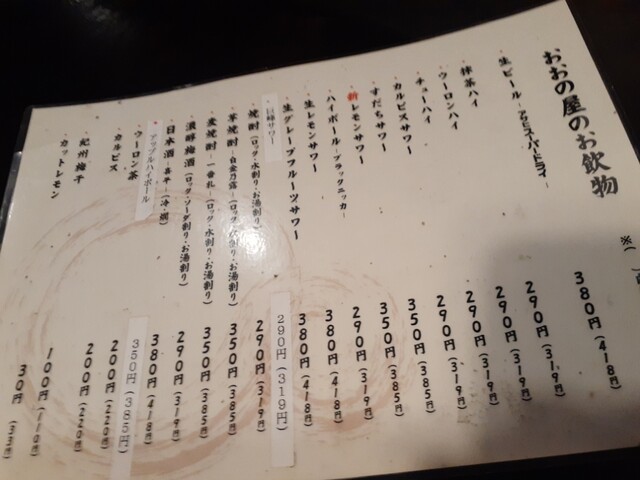 おおの屋のお飲物
※(
・生ビール -アサヒスーパードライ- 380円(418円)
・抹茶ハイ 290円(319円)
・ウーロンハイ 290円(319円)
・チューハイ 290円(319円)
・カルピスサワー 290円(319円)
・すだちサワー 350円(385円)
・新レモンサワー 350円(385円)
・ハイボール -ブラックニッカ- 290円(319円)
・生レモンサワー 380円(418円)
・生グレープフルーツサワー 380円(418円)
・巨峰サワー 290円(319円)
・焼酎(ロック・水割り・お湯割り) 290円(319円)
・芋焼酎 -白金乃露-(ロック・水割り・お湯割り) 350円(385円)
・麦焼酎 -一番札-(ロック・水割り・お湯割り) 350円(385円)
・濃醇梅酒(ロック・ソーダ割り・お湯割り) 290円(319円)
・日本酒 -喜平-(冷・燗) 380円(418円)
・アップルハイボール 350円(385円)
・ウーロン茶 200円(220円)
・カルピス 200円(220円)
・紀州梅干 100円(110円)
・カットレモン 30円(33円)